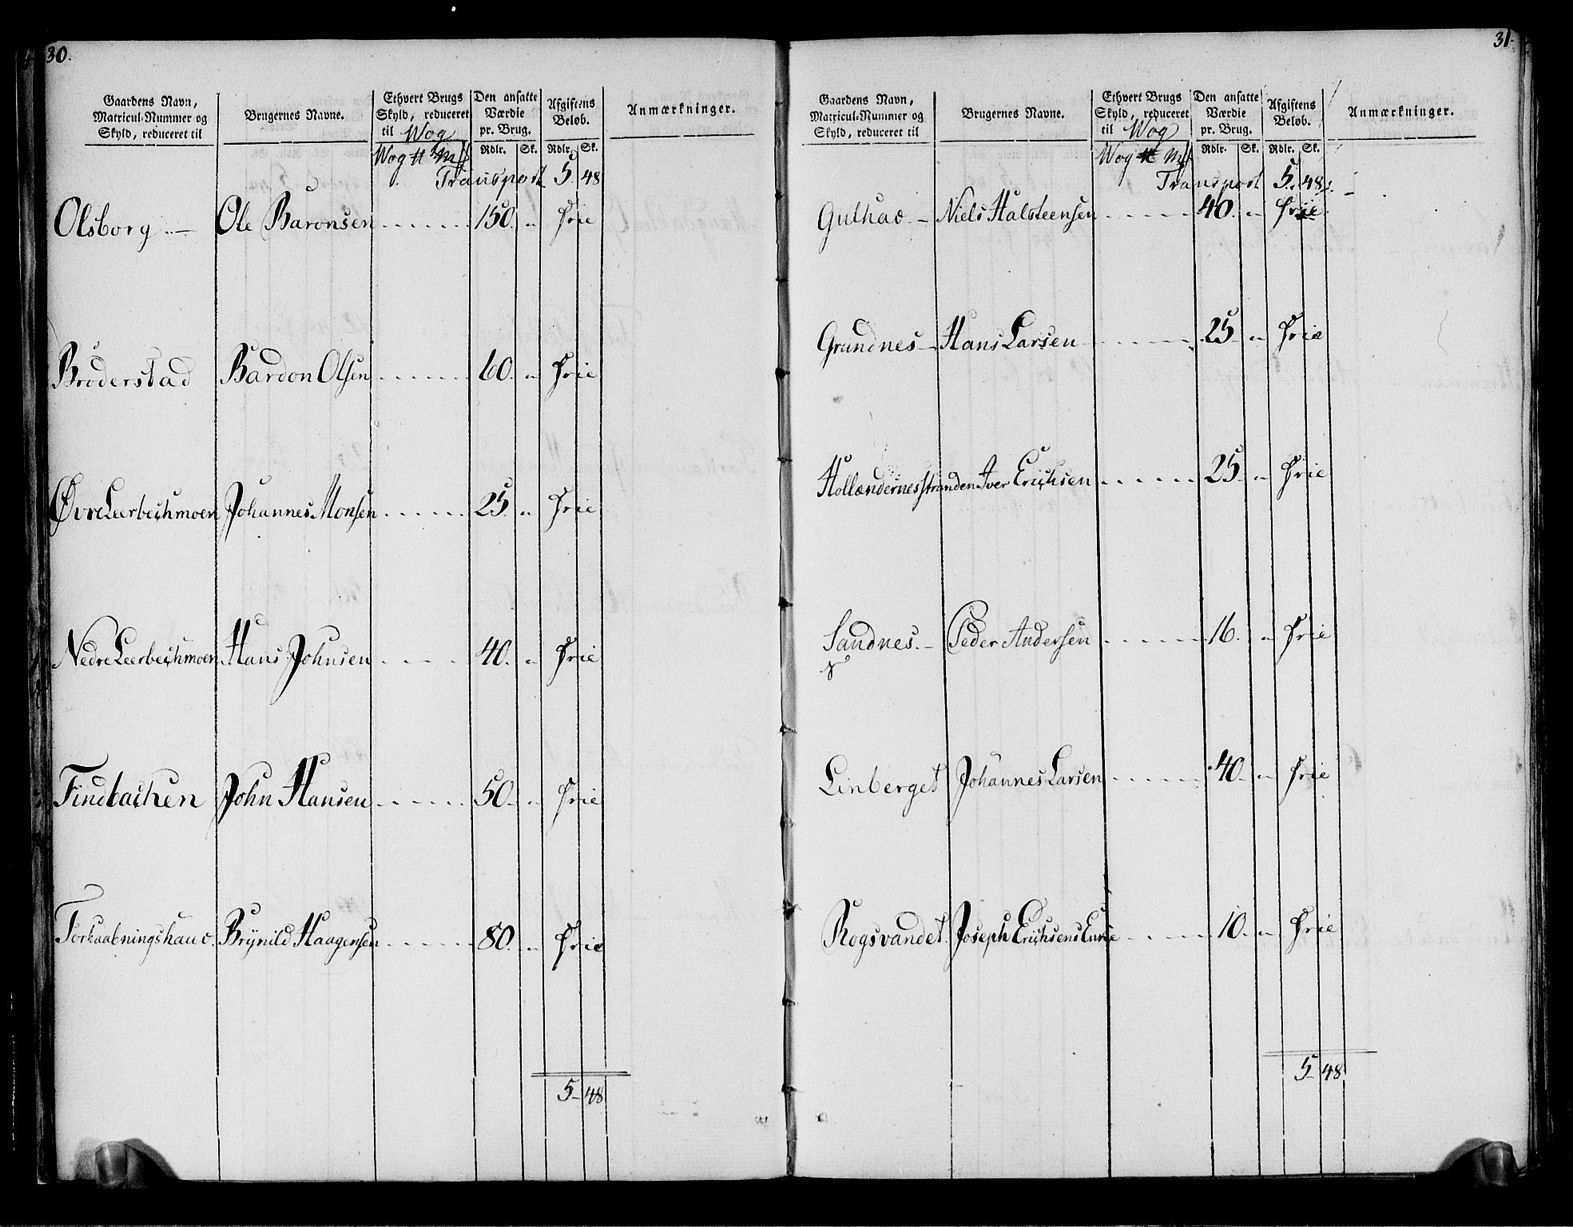 30.
Gaardens Navn, Matricul-Nummer og Skyld, reduceret til
Brugernes Navne.
Ethvert Brugs Skyld, reduceret til Wog
Den ansatte Værdie pr. Brug.
Afgiftens Beløb.
Anmærkninger.
Wog
Rdlr. Sk. Rdlr. Sk.
Transport 5 48
Olsborg .. — Ole Baronsen 150. „ frie
Broderstad Bardon Olsen 60. „ frie
Øvre Leerbechmoen Johannes Monsen 25. „ frie
Nedre Leerbechmoen Hans Johnsen 40. „ frie
Finbachen John Hansen 50. „ frie
Brynild Haagensen 80. „ frie
5 48
31.
Gaardens Navn, Matricul-Nummer og Skyld, reduceret til
Brugernes Navne.
Ethvert Brugs Skyld, reduceret til Wog
Den ansatte Værdie pr. Brug.
Afgiftens Beløb.
Anmærkninger.
Wog
Rdlr. Sk. Rdlr. Sk.
Transport 5. 48
Gulhav — Niels Halsteensen 40. „ frie
Grundnes — Hans Larsen 25. „ frie
Hollændernesstranden Iver Erichsen 25. „ frie
Sandnes. — Peder Andersen 16. „ frie
Linberget Johannes Larsen 40. „ frie
Rogsvandet Joseph Erichsens Enke 10. „ frie
5 48